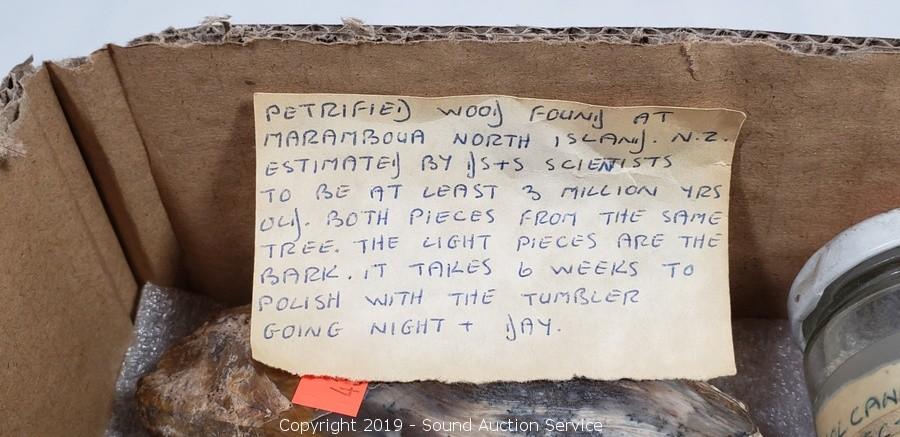 PETRIFIED WOOD FOUND AT
MARAMBOUA NORTH ISLAND. N.Z.
ESTIMATED BY DS+S SCIENTISTS
TO BE AT LEAST 3 MILLION YRS
OLD. BOTH PIECES FROM THE SAME
TREE. THE LIGHT PIECES ARE THE
BARK. IT TAKES 6 WEEKS TO
POLISH WITH THE TUMBLER
GOING NIGHT + DAY.
Copyright 2019 - Sound Auction Service